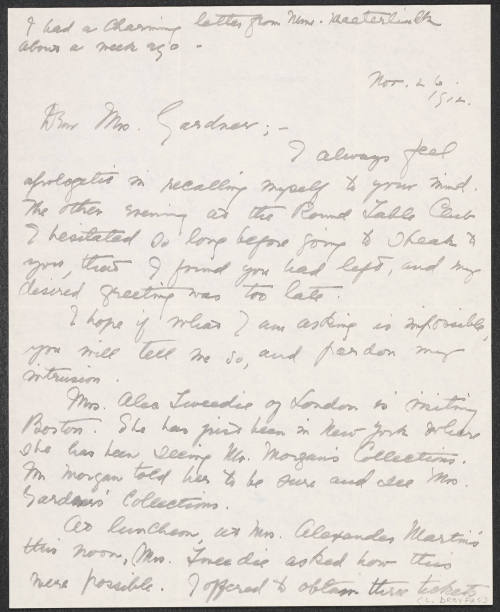 I had a charming letter from Mme. Maeterlinck
about a week ago -
Nov. 26.
1912.
Dear Mrs. Gardner; -
I always feel
apologetic in recalling myself to your mind.
The other evening at the Round Table Club
I hesitated so long before going to speak to
you, that I found you had left, and my
desired greeting was too late.
I hope if what I am asking is impossible,
you will tell me so, and pardon my
intrusion.
Mrs. Alec Tweedie of London is visiting
Boston. She has just been in New York where
she has been seeing Mr. Morgan's Collections.
Mr Morgan told her to be sure and see Mrs.
Gardner's Collections.
At luncheon, at Mrs. Alexander Martin's
this noon, Mrs. Tweedie asked how this
were possible. I offered to obtain three tickets
(L. DREYFUS)